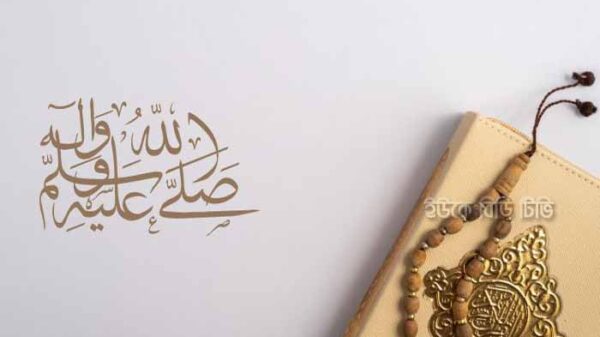 صَلَّى اللهُ عَلَيْهِ وَآلِهِ وَسَلَّم
ইউকে বিডি টিভি